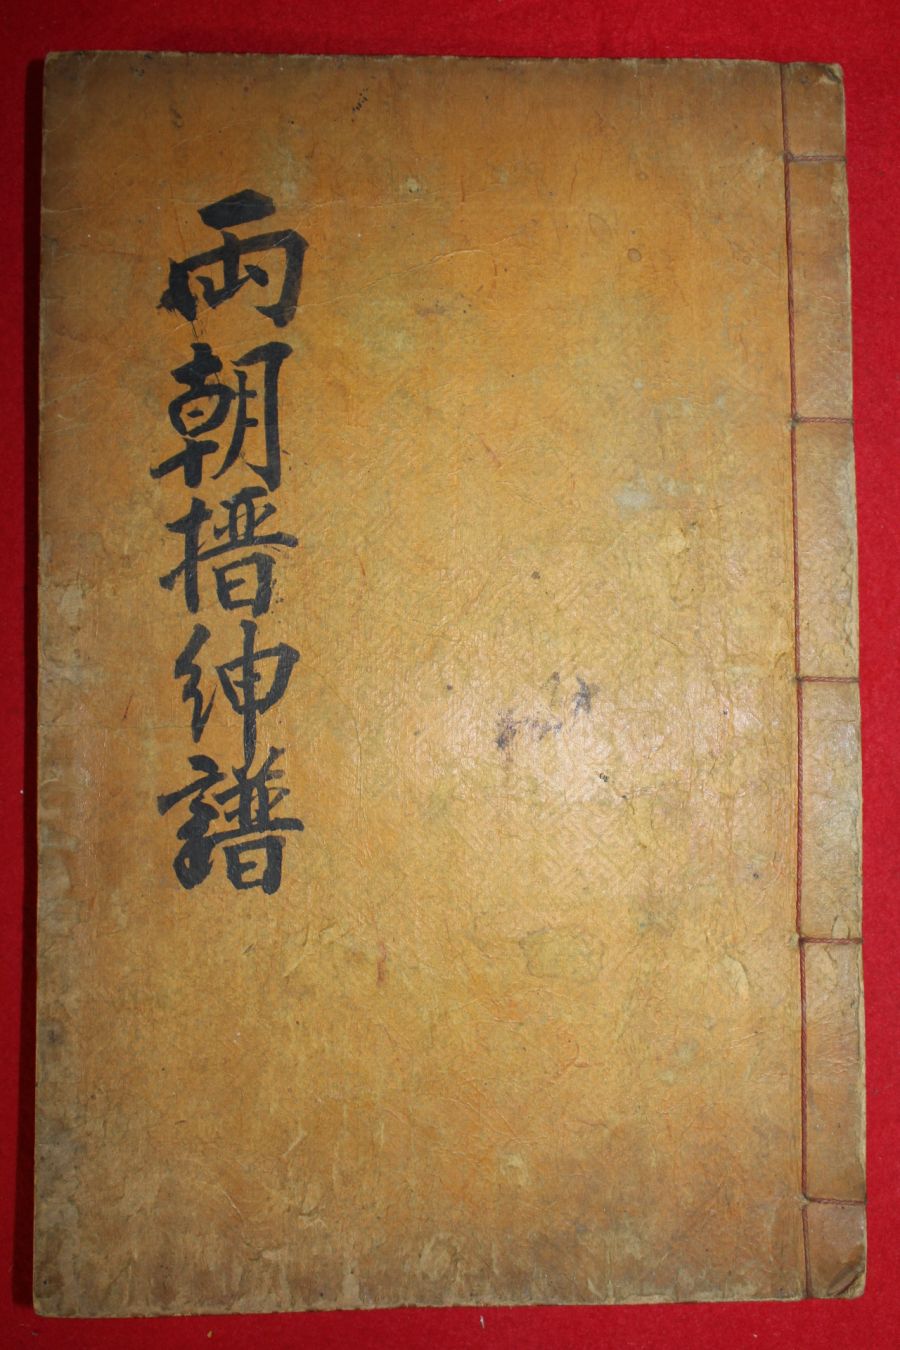 両朝搢紳譜